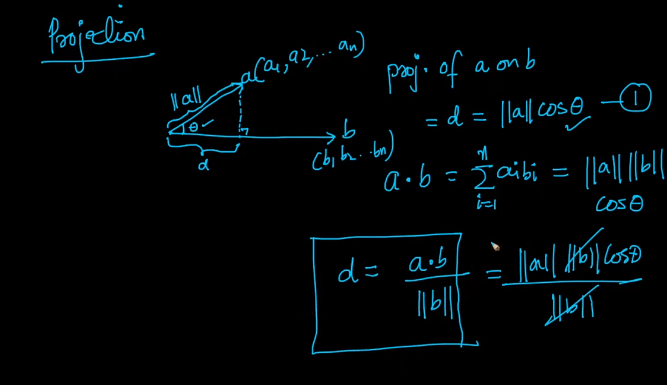 Projection
a(a1, a2, ... an)
||a||
θ
d
b
(b1 b2 .. bn)
proj. of a on b
= d = ||a|| cosθ — 1
a · b = n∑i=1 aibi = ||a|| ||b||
cosθ
d = a·b / ||b|| = ||a|| ||b|| cosθ / ||b||